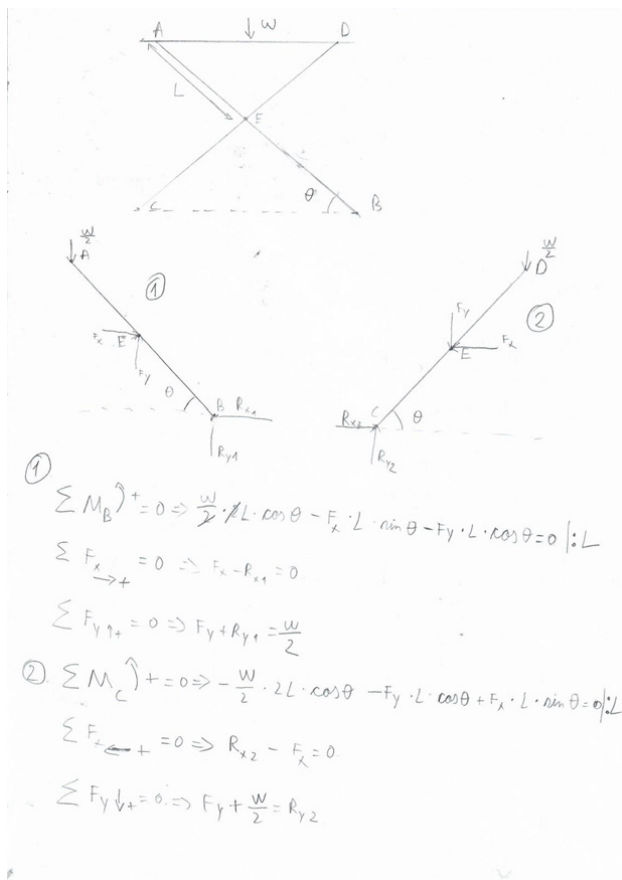 A
W
D
L
E
C
θ
B
W/2
A
①
Fx
E
Fy
θ
B
Rx1
Ry1
W/2
D
②
Fy
Fx
E
Rx2
C
θ
Ry2
①
ΣM_B⤴+ =0 => W/2·2L·cosθ - Fx·L·sinθ - Fy·L·cosθ=0 |:L
ΣFx→+ =0 => Fx-Rx1=0
ΣFy↑+ =0 => Fy+Ry1=W/2
② ΣM_C⤴+ =0 => -W/2·2L·cosθ -Fy·L·cosθ+Fx·L·sinθ=0|:L
ΣFx←+ =0 => Rx2-Fx=0
ΣFy↓+ =0 => Fy+W/2=Ry2